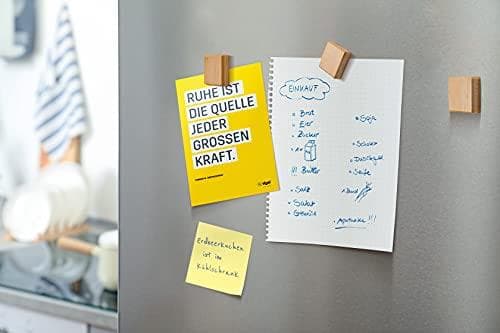 RUHE IST
DIE QUELLE
JEDER
GROSSEN
KRAFT.
EINKAUF
Brot
Eier
Zucker
!!! Butter
Salz
Salat
Soja
Duschgel
Seife
Apotheke !!!
Erdbeerkuchen
ist im
Kühlschrank